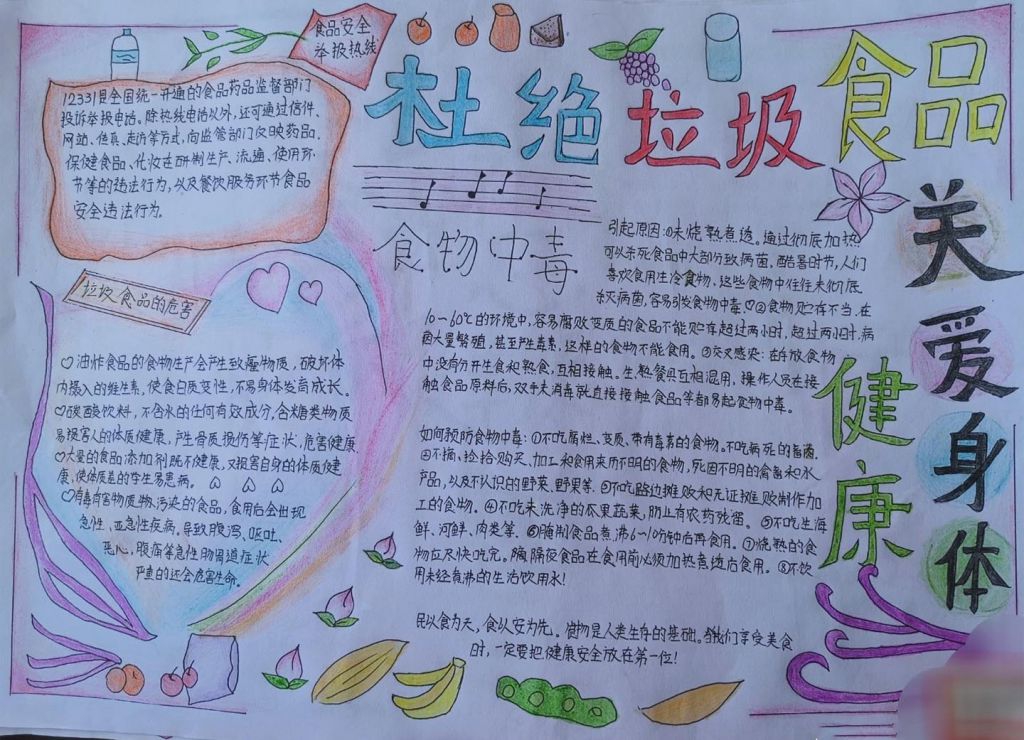 食品安全
举报热线
12331是全国统一开通的食品药品监督部门
投诉举报电话。除热线电话以外,还可通过信件、
网站、传真、走访等方式,向监管部门反映药品、
保健食品、化妆在研制生产、流通、使用环
节等的违法行为,以及餐饮服务环节食品
安全违法行为。
杜绝垃圾食品
关爱身体
健康
垃圾食品的危害
♡油炸食品的食物生产会产生致癌物质,破坏体
内摄入的维生素,使食日质变性,不易身体发育成长。
♡碳酸饮料,不含水的任何有效成分,含糖类物质
易损害人的体质健康,产生骨质损伤等症状,危害健康
♡大量的食品添加剂既不健康,又损害自身的体质健
康,使体质差的学生易患病。
♡有毒有害物质物污染的食品,食用后会出现
急性、亚急性疾病。导致腹泻、呕吐、
恶心,腹痛等急性肠胃道症状
严重的还会危害生命。
食物中毒
引起原因:①未烧熟煮透。通过彻底加热
可以杀死食品中大部分致病菌,酷暑时节,人们
喜欢食用生冷食物,这些食物中往往未彻底
杀灭病菌,容易引发食物中毒。♡②食物贮存不当,在
10～60℃的环境中,容易腐败变质的食品不能贮存超过两小时,超过两小时,病
菌大量繁殖,甚至产生毒素,这样的食物不能食用。③交叉感染:在存放食物
中没有分开生食和熟食,互相接触。生、熟餐具互相混用,操作人员在接
触食品原料后,双手未消毒就直接接触食品等都易起食物中毒。
如何预防食物中毒:①不吃腐烂、变质、带有毒素的食物。不吃病死的畜禽。
②不摘、捡拾购买、加工和食用来历不明的食物,死因不明的禽畜和水
产品,以及不认识的野菜、野果等。③不吃路边摊贩和无证摊贩制作加
工的食物。④不吃未洗净的瓜果蔬菜,防止有农药残留。⑤不吃生海
鲜、河鲜、肉类等。⑥腌制食品煮沸6～10分钟右再食用。⑦烧熟的食
物应尽快吃完。隔夜食品在食用前必须加热煮透后食用。⑧不饮
用未经煮沸的生活饮用水!
民以食为天,食以安为先。食物是人类生存的基础。我们享受美食
时,一定要把健康安全放在第一位!